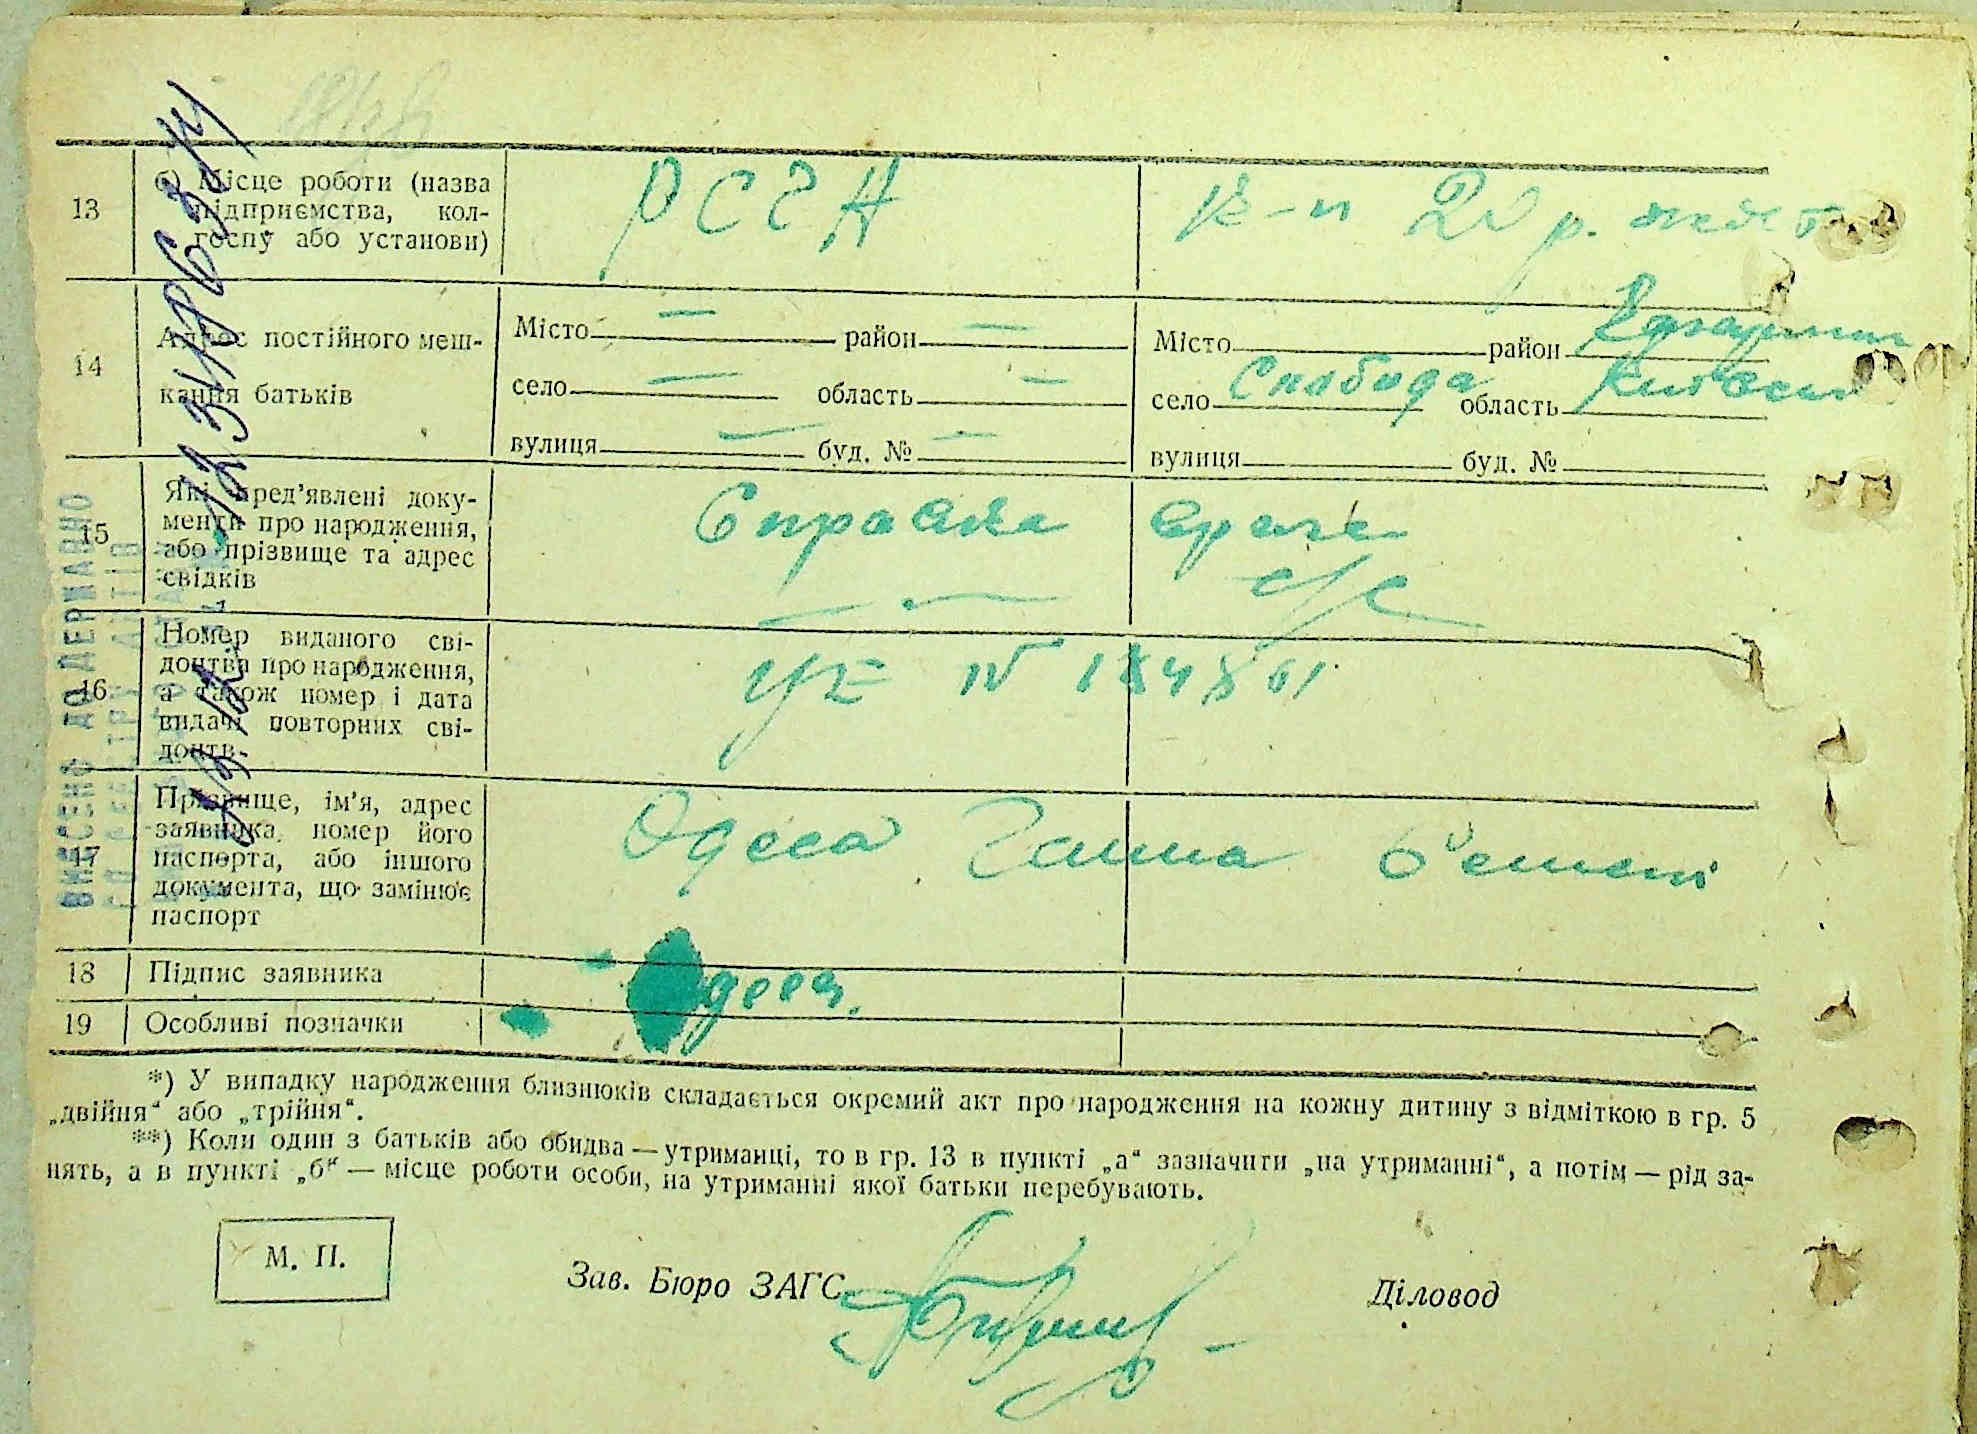 13
б) Місце роботи (назва
підприємства, кол-
госпу або установи)
РСЧА
к-п 20 р.
14
Адрес постійного меш-
кання батьків
Місто — район —
село — область —
вулиця — буд. № —
Місто район
село Слобода область
вулиця буд. №
15
Які пред’явлені доку-
менти про народження,
або прізвище та адрес
свідків
Справка врача
16
Номер виданого сві-
доцтва про народження,
а також номер і дата
видачі повторних сві-
доцтв.
17
Прізвище, ім’я, адрес
заявника, номер його
паспорта, або іншого
документа, що замінює
паспорт
Одеса Ганна
18
Підпис заявника
19
Особливі позначки
ВНЕСЕНО ДО ДЕРЖАВНО
*) У випадку народження близнюків складається окремий акт про народження на кожну дитину з відміткою в гр. 5
„двійня“ або „трійня“.
**) Коли один з батьків або обидва — утриманці, то в гр. 13 в пункті „а“ зазначити „на утриманні“, а потім — рід за-
нять, а в пункті „б“ — місце роботи особи, на утриманні якої батьки перебувають.
М. П.
Зав. Бюро ЗАГС
Діловод